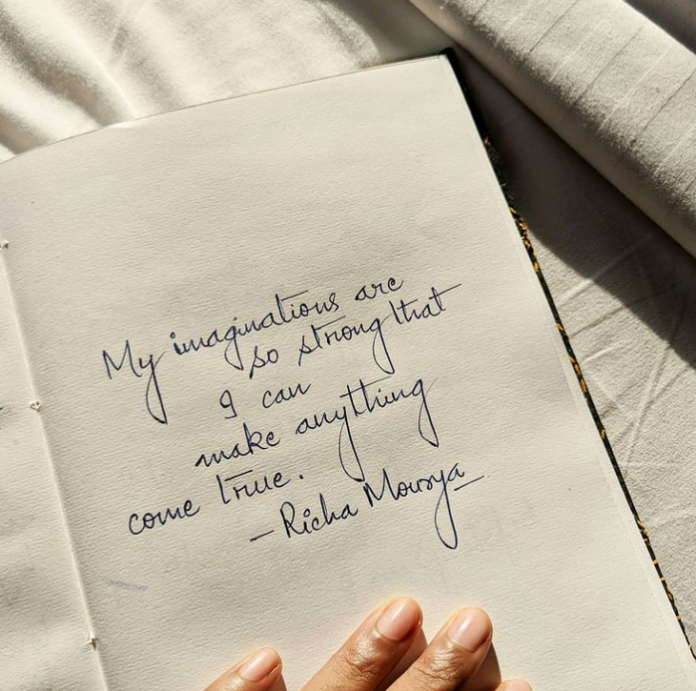 My imaginations are
so strong that
I can
make anything
come true.
- Richa Mourya -